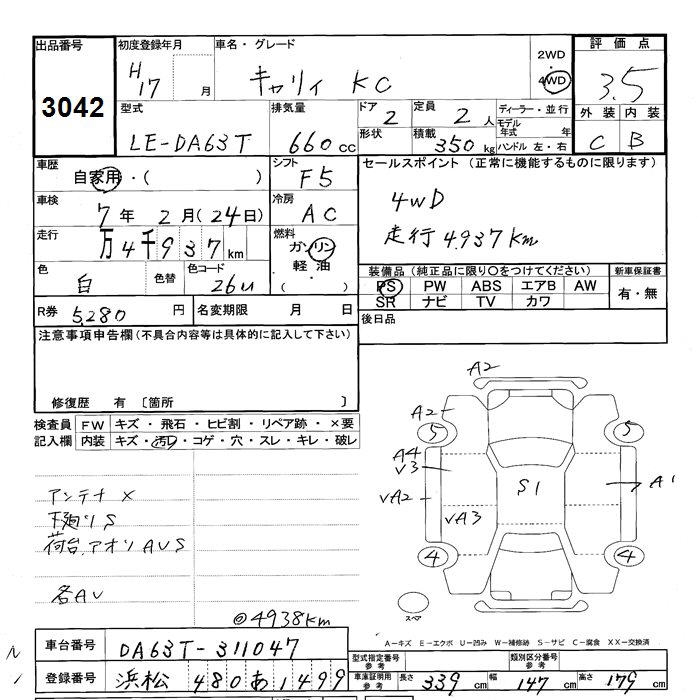 出品番号 3042
初度登録年月 H17 月
車名・グレード キャリィ KC
2WD・4WD
評価点 3.5
型式 LE-DA63T
排気量 660cc
ドア 2
形状
定員 2人
積載 350kg
ディーラー・並行
モデル年式 年
ハンドル 左・右
外装 内装
C B
車歴 自家用・( )
シフト F5
車検 7年 2月(24日)
冷房 AC
走行 万4千937km
燃料 ガソリン 軽油 ( ・ )
色 白
色替
色コード 26U
R券 5,280円
名変期限 月 日
セールスポイント (正常に機能するものに限ります)
4WD
走行4.937Km
装備品(純正品に限り○をつけてください)
PS PW ABS エアB AW
SR ナビ TV カワ
新車保証書
有・無
後日品
注意事項申告欄(不具合内容等は具体的に記入して下さい)
修復歴 有 〔箇所 〕
検査員記入欄
FW キズ・飛石・ヒビ割・リペア跡・×要
内装 キズ・汚れ・コゲ・穴・スレ・キレ・破レ
アンテナ ×
下廻り S
荷台.アオリ AUS
各AU
@4938Km
A2
A2
5 5
A4
V3
S1
A1
VA2
VA3
4 4
スペア
A-キズ E-エクボ U-凹み W-補修跡 S-サビ C-腐食 XX-交換済
車台番号 DA63T-311047
登録番号 浜松 480 あ 1499
型式指定番号 参考
類別区分番号 参考
車庫証明用参考 長さ 339cm 幅 147cm 高さ 179cm